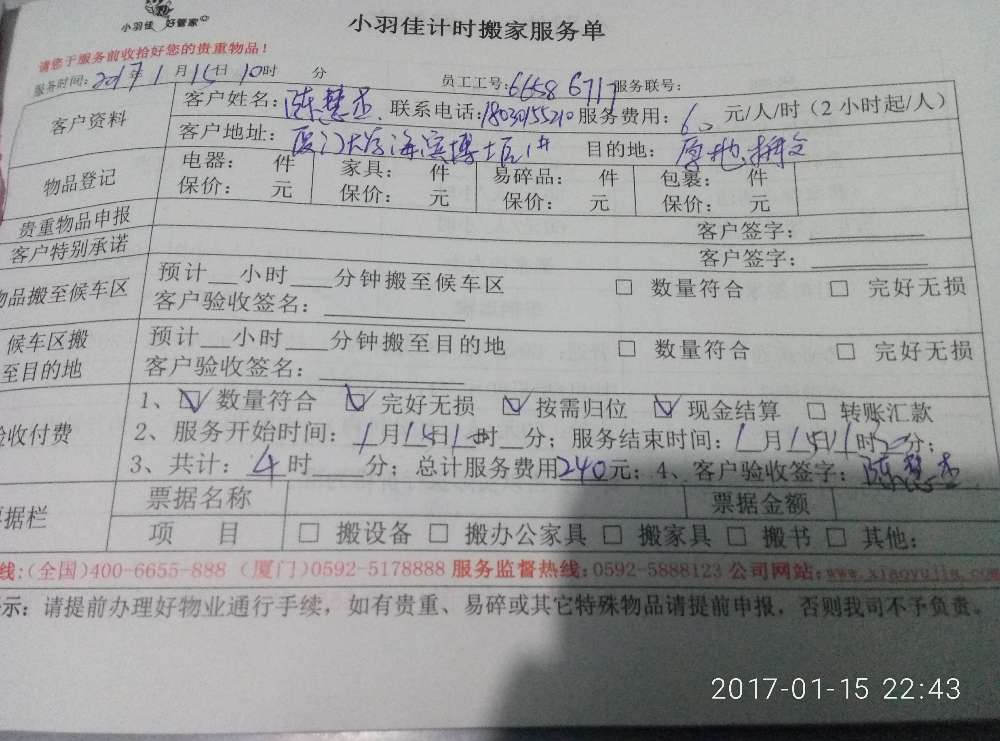 小羽佳 好管家
小羽佳计时搬家服务单
请您于服务前收拾好您的贵重物品！
服务时间：2017年1月15日10时 分 员工工号：6658 6717 服务联号：
客户资料
客户姓名：陈慧杰 联系电话：18030155210 服务费用：60元/人/时（2小时起/人）
客户地址：厦门大学海滨 目的地：原地
物品登记
电器： 件 家具： 件 易碎品： 件 包裹： 件
保价： 元 保价： 元 保价： 元 保价： 元
贵重物品申报 客户签字：
客户特别承诺 客户签字：
物品搬至候车区
预计__小时___分钟搬至候车区 □ 数量符合 □ 完好无损
客户验收签名：
候车区搬
至目的地
预计__小时___分钟搬至目的地 □ 数量符合 □ 完好无损
客户验收签名：
验收付费
1、☑ 数量符合 ☑ 完好无损 ☑ 按需归位 ☑ 现金结算 □ 转账汇款
2、服务开始时间：1月15日 时 分；服务结束时间：1月15日11时 分；
3、共计：4时 分；总计服务费用240元；4、客户验收签字：陈慧杰
票据栏
票据名称 票据金额
项 目 □ 搬设备 □ 搬办公家具 □ 搬家具 □ 搬书 □ 其他：
线：(全国)400-6655-888 (厦门)0592-5178888 服务监督热线：0592-5888123 公司网站：www.xiaoyujia.com
示：请提前办理好物业通行手续，如有贵重、易碎或其它特殊物品请提前申报，否则我司不予负责。
2017-01-15 22:43